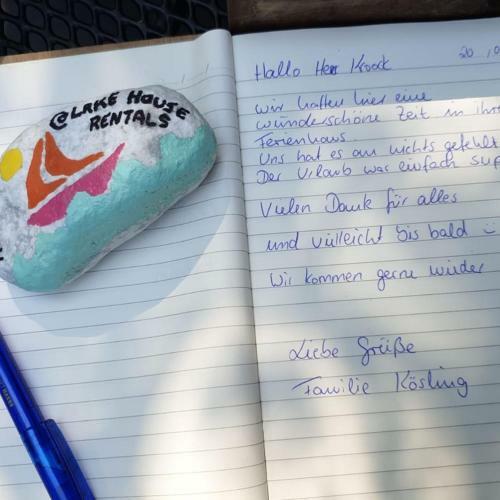 @LAKE HOUSE
RENTALS
Hallo Herr
20
wir hatten hier eine
wünderschöne Zeit in
Ferienhaus.
Uns hat es an nichts gefehlt
Der Urlaub war einfach
Vielen Dank für alles
und villeicht bis bald
Wir kommen gerne wieder
Liebe Grüße
Familie Kösling